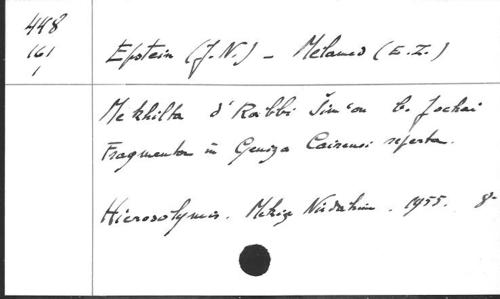 448
161
1
Epstein (J.N.) - Melamed (E.Z.)
Mekhilta d'Rabbi Šim'on b. Jochai
Fragmenta in Geniza Cairensi reperta.
Hierosolymis. Mekize Nirdamim. 1955. 8-